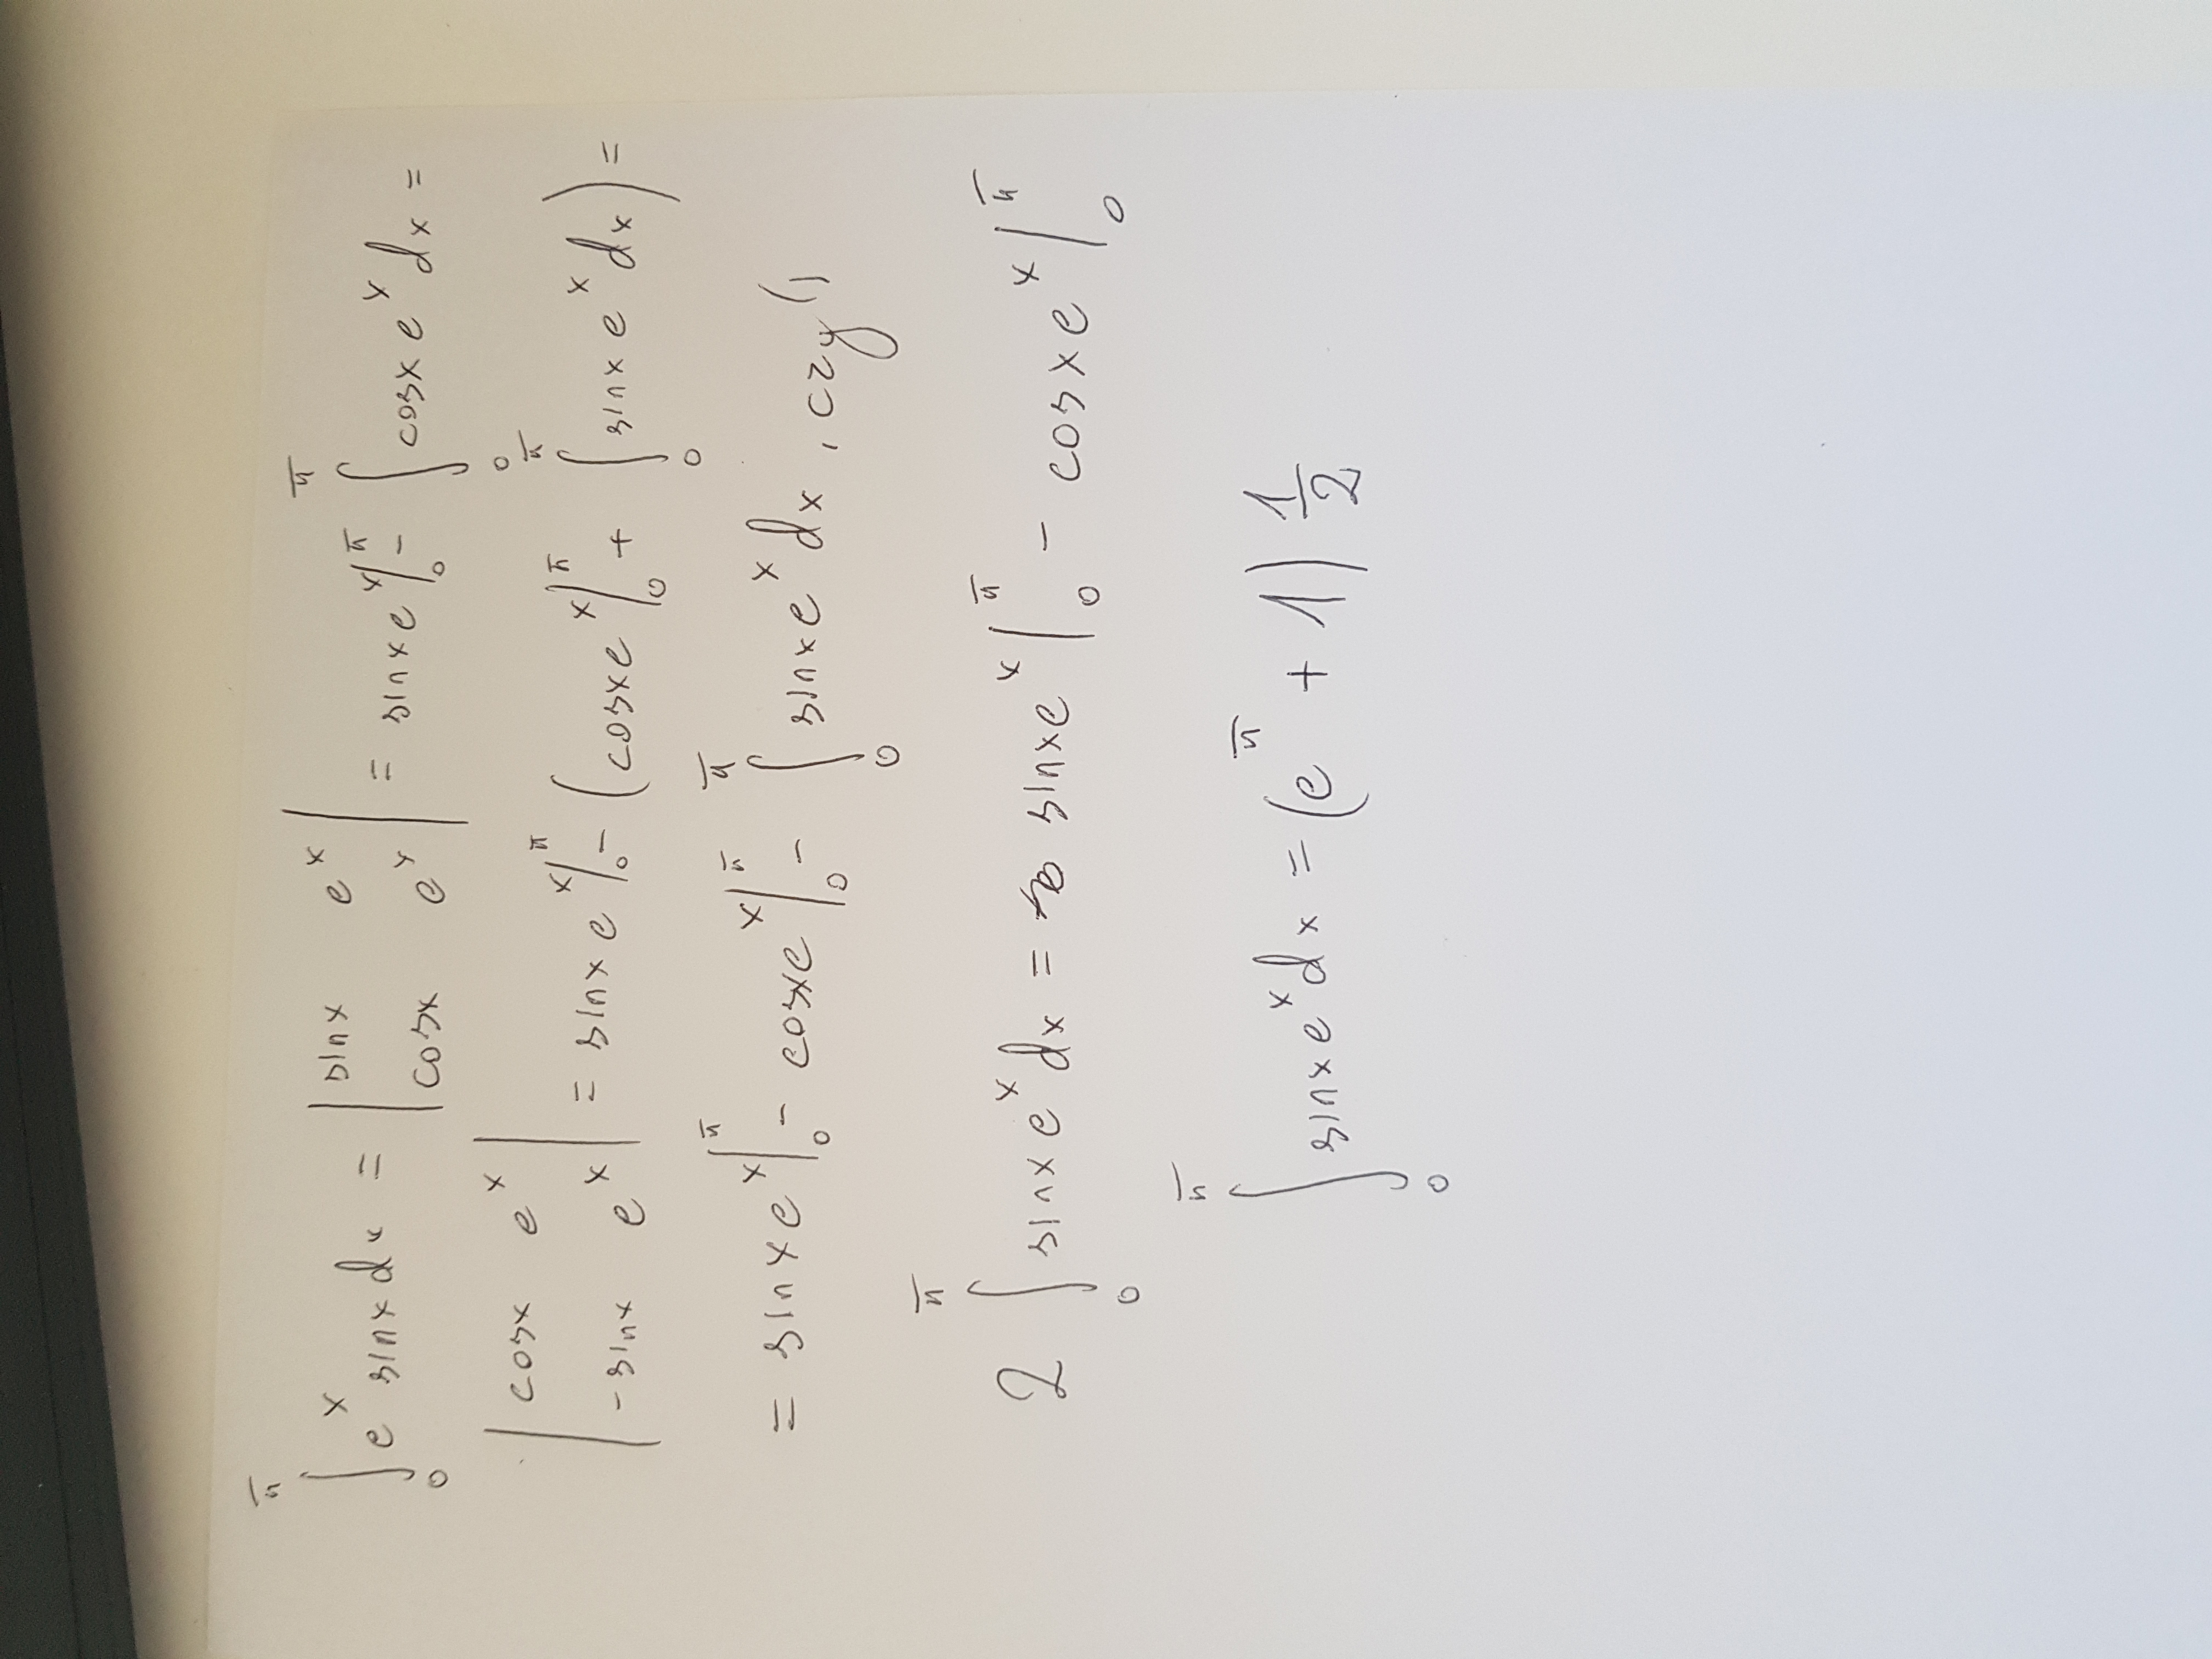 ∫₀^π e^x sinx dx = | sinx e^x ; cosx e^x | = sinx e^x |₀^π - ∫₀^π cosx e^x dx =
| cosx e^x ; -sinx e^x | = sinx e^x |₀^π - (cosx e^x |₀^π + ∫₀^π sinx e^x dx) =
= sinx e^x |₀^π - cosx e^x |₀^π - ∫₀^π sinx e^x dx, czyli
2 ∫₀^π sinx e^x dx = sinx e^x |₀^π - cosx e^x |₀^π
∫₀^π sinx e^x dx = (e^π + 1) 1/2